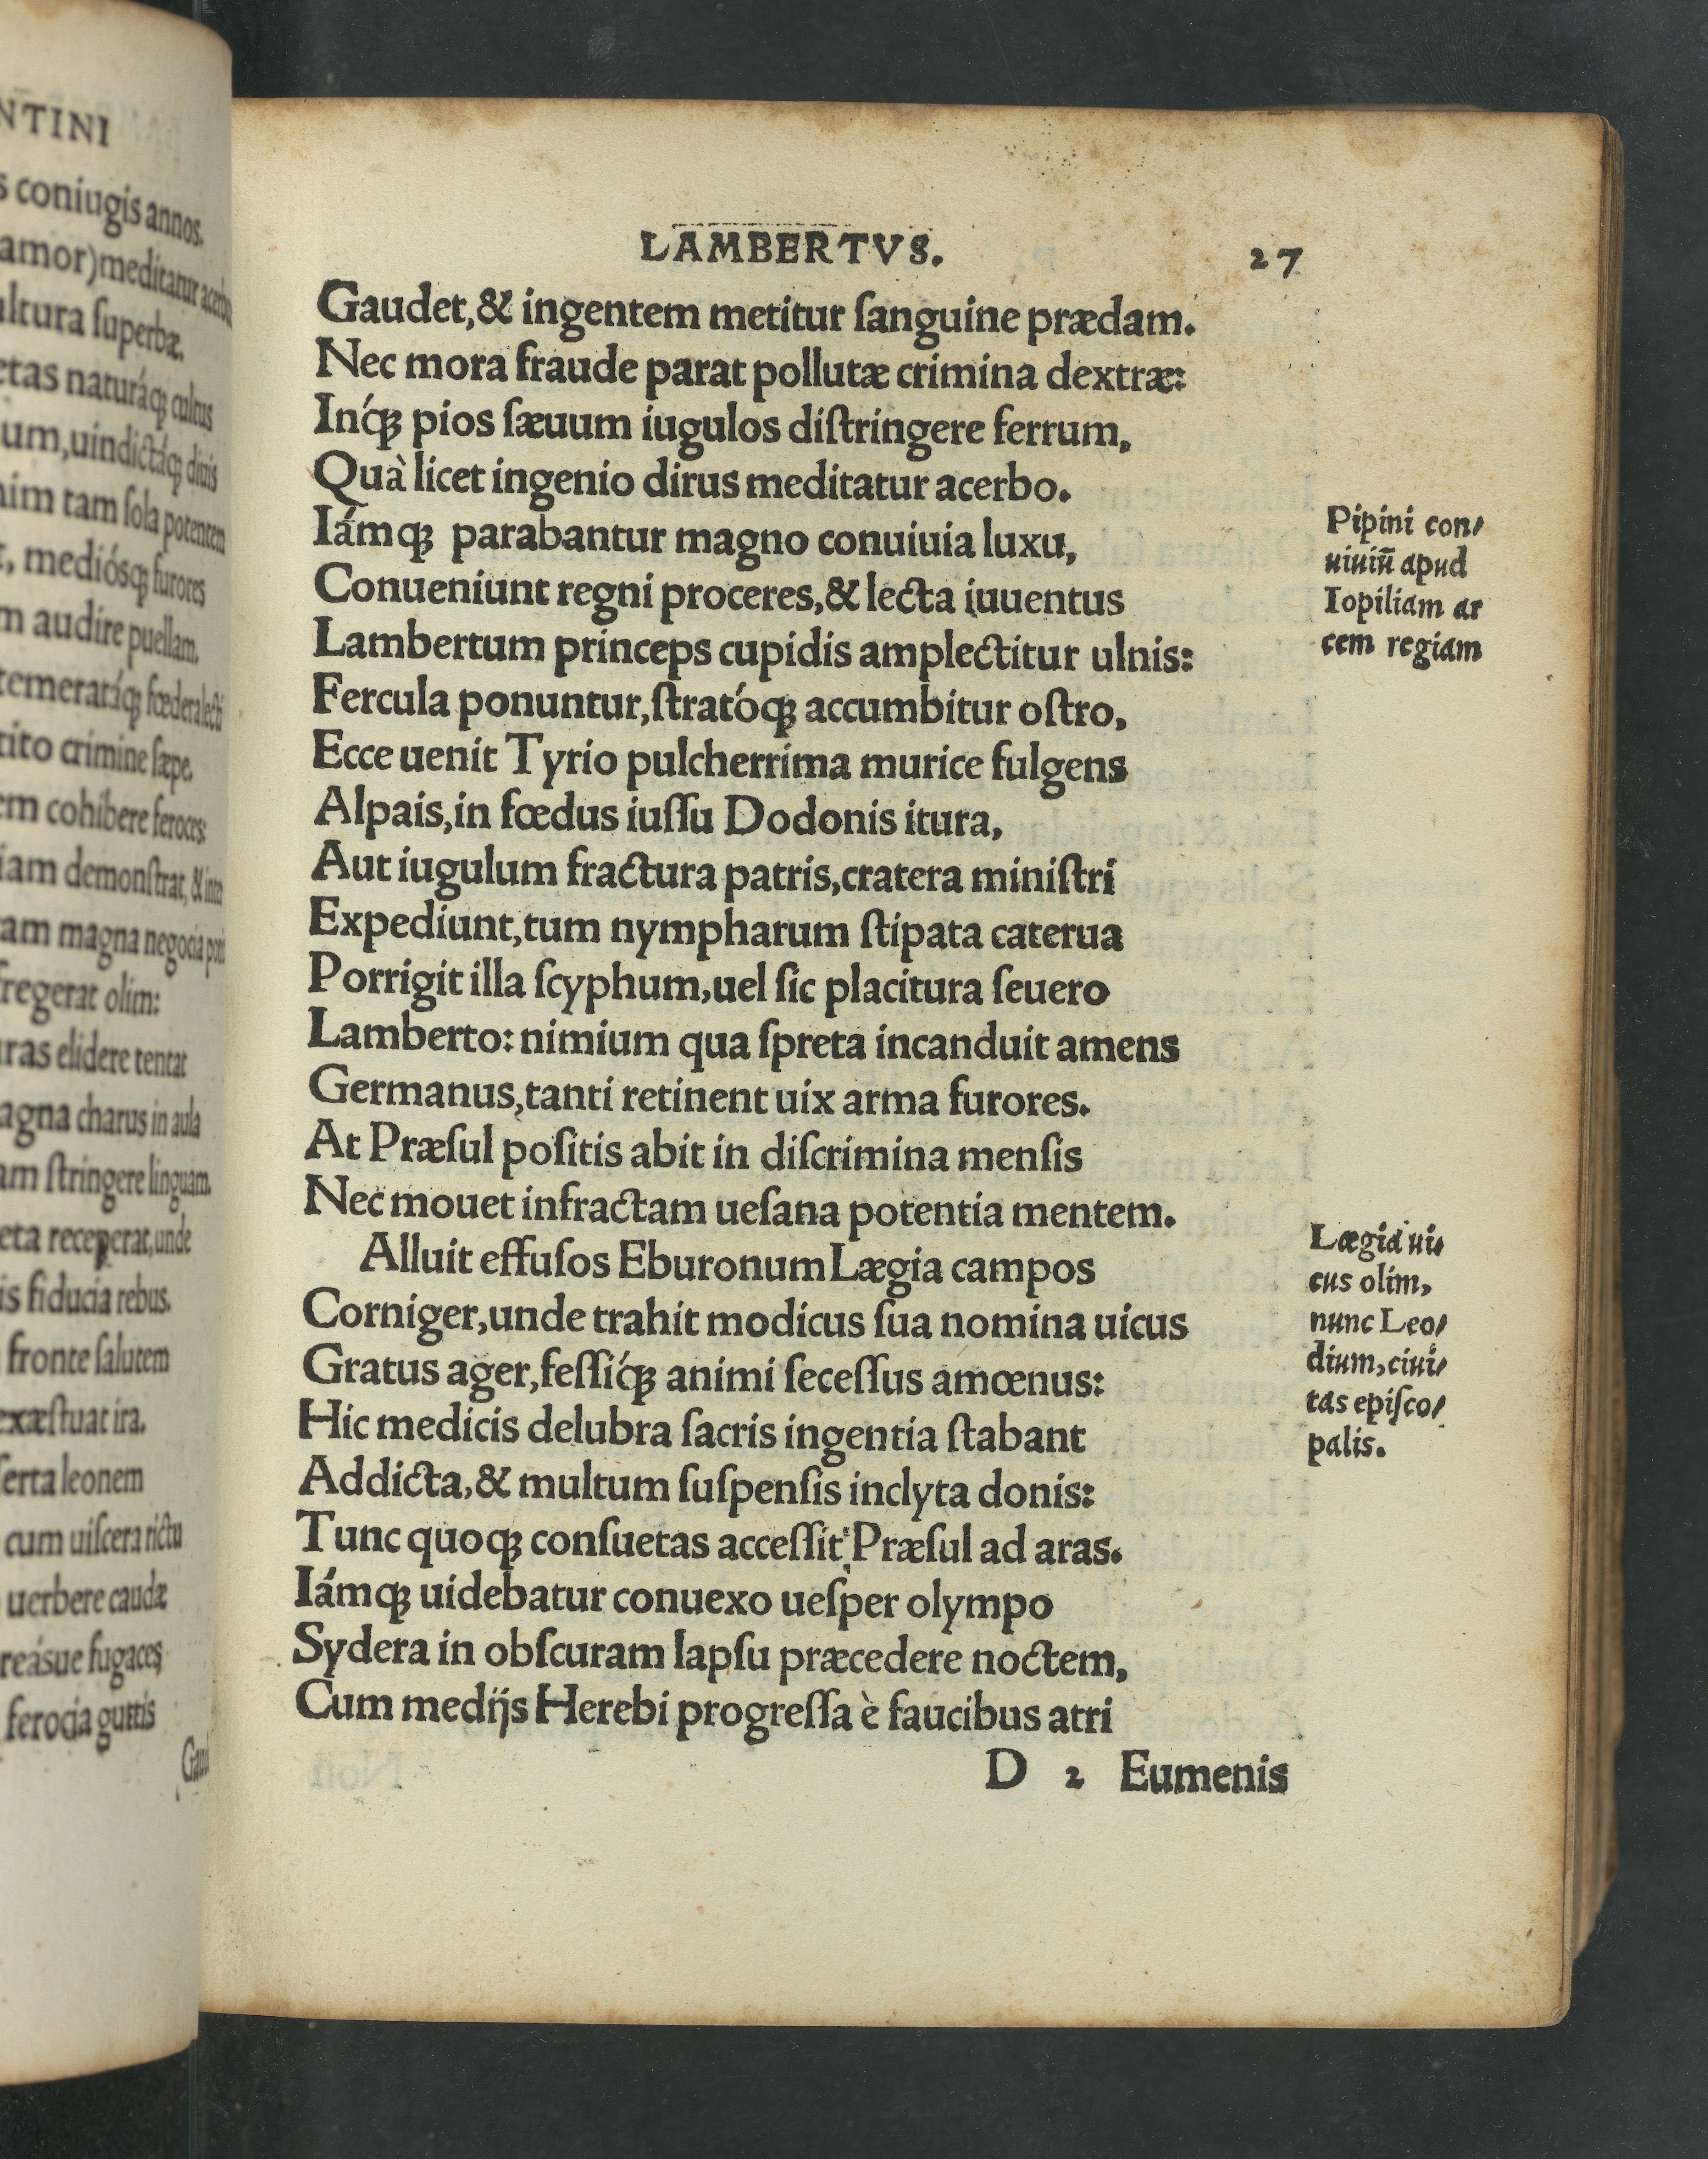 NTINI
coniugis annos.
amor) meditatur
ltura superbæ.
etas naturáq; cultus
um, uindictáq; diuis
nim tam sola potentem
, mediósq; furores
m audire puellam.
temeratáq; fœdera lecti
tito crimine sæpe.
em cohibere feroces:
iam demonstrat, &
tam magna negocia
fregerat olim:
ras elidere tentat
agna charus in aula
am stringere linguam.
eta receperat, unde
is fiducia rebus.
fronte salutem
exæstuat ira.
serta leonem
cum uiscera rictu
uerbere caudæ
reásue fugaces
ferocia guttis
Gaud
LAMBERTVS.
27
Gaudet, & ingentem metitur ſanguine prædam.
Nec mora fraude parat pollutæ crimina dextræ:
Inq́; pios ſæuum iugulos diſtringere ferrum,
Quà licet ingenio dirus meditatur acerbo.
Iámq; parabantur magno conuiuia luxu,
Conueniunt regni proceres, & lecta iuuentus
Lambertum princeps cupidis amplectitur ulnis:
Fercula ponuntur, ſtratóq; accumbitur oſtro,
Ecce uenit Tyrio pulcherrima murice fulgens
Alpais, in fœdus iuſſu Dodonis itura,
Aut iugulum fractura patris, cratera miniſtri
Expediunt, tum nympharum ſtipata caterua
Porrigit illa ſcyphum, uel ſic placitura ſeuero
Lamberto: nimium qua ſpreta incanduit amens
Germanus, tanti retinent uix arma furores.
At Præſul poſitis abit in diſcrimina menſis
Nec mouet infractam ueſana potentia mentem.
Alluit effuſos Eburonum Lægia campos
Corniger, unde trahit modicus ſua nomina uicus
Gratus ager, feſſiq́; animi ſeceſſus amœnus:
Hic medicis delubra ſacris ingentia ſtabant
Addicta, & multum ſuſpenſis inclyta donis:
Tunc quoq; conſuetas acceſſit Præſul ad aras.
Iámq; uidebatur conuexo ueſper olympo
Sydera in obſcuram lapſu præcedere noctem,
Cum medijs Herebi progreſſa è faucibus atri
D 2 Eumenis
Pipini con/
uiuiū apud
Iopiliam ar
cem regiam
Lægia ui/
cus olim,
nunc Leo/
dium, ciui/
tas epiſco/
palis.